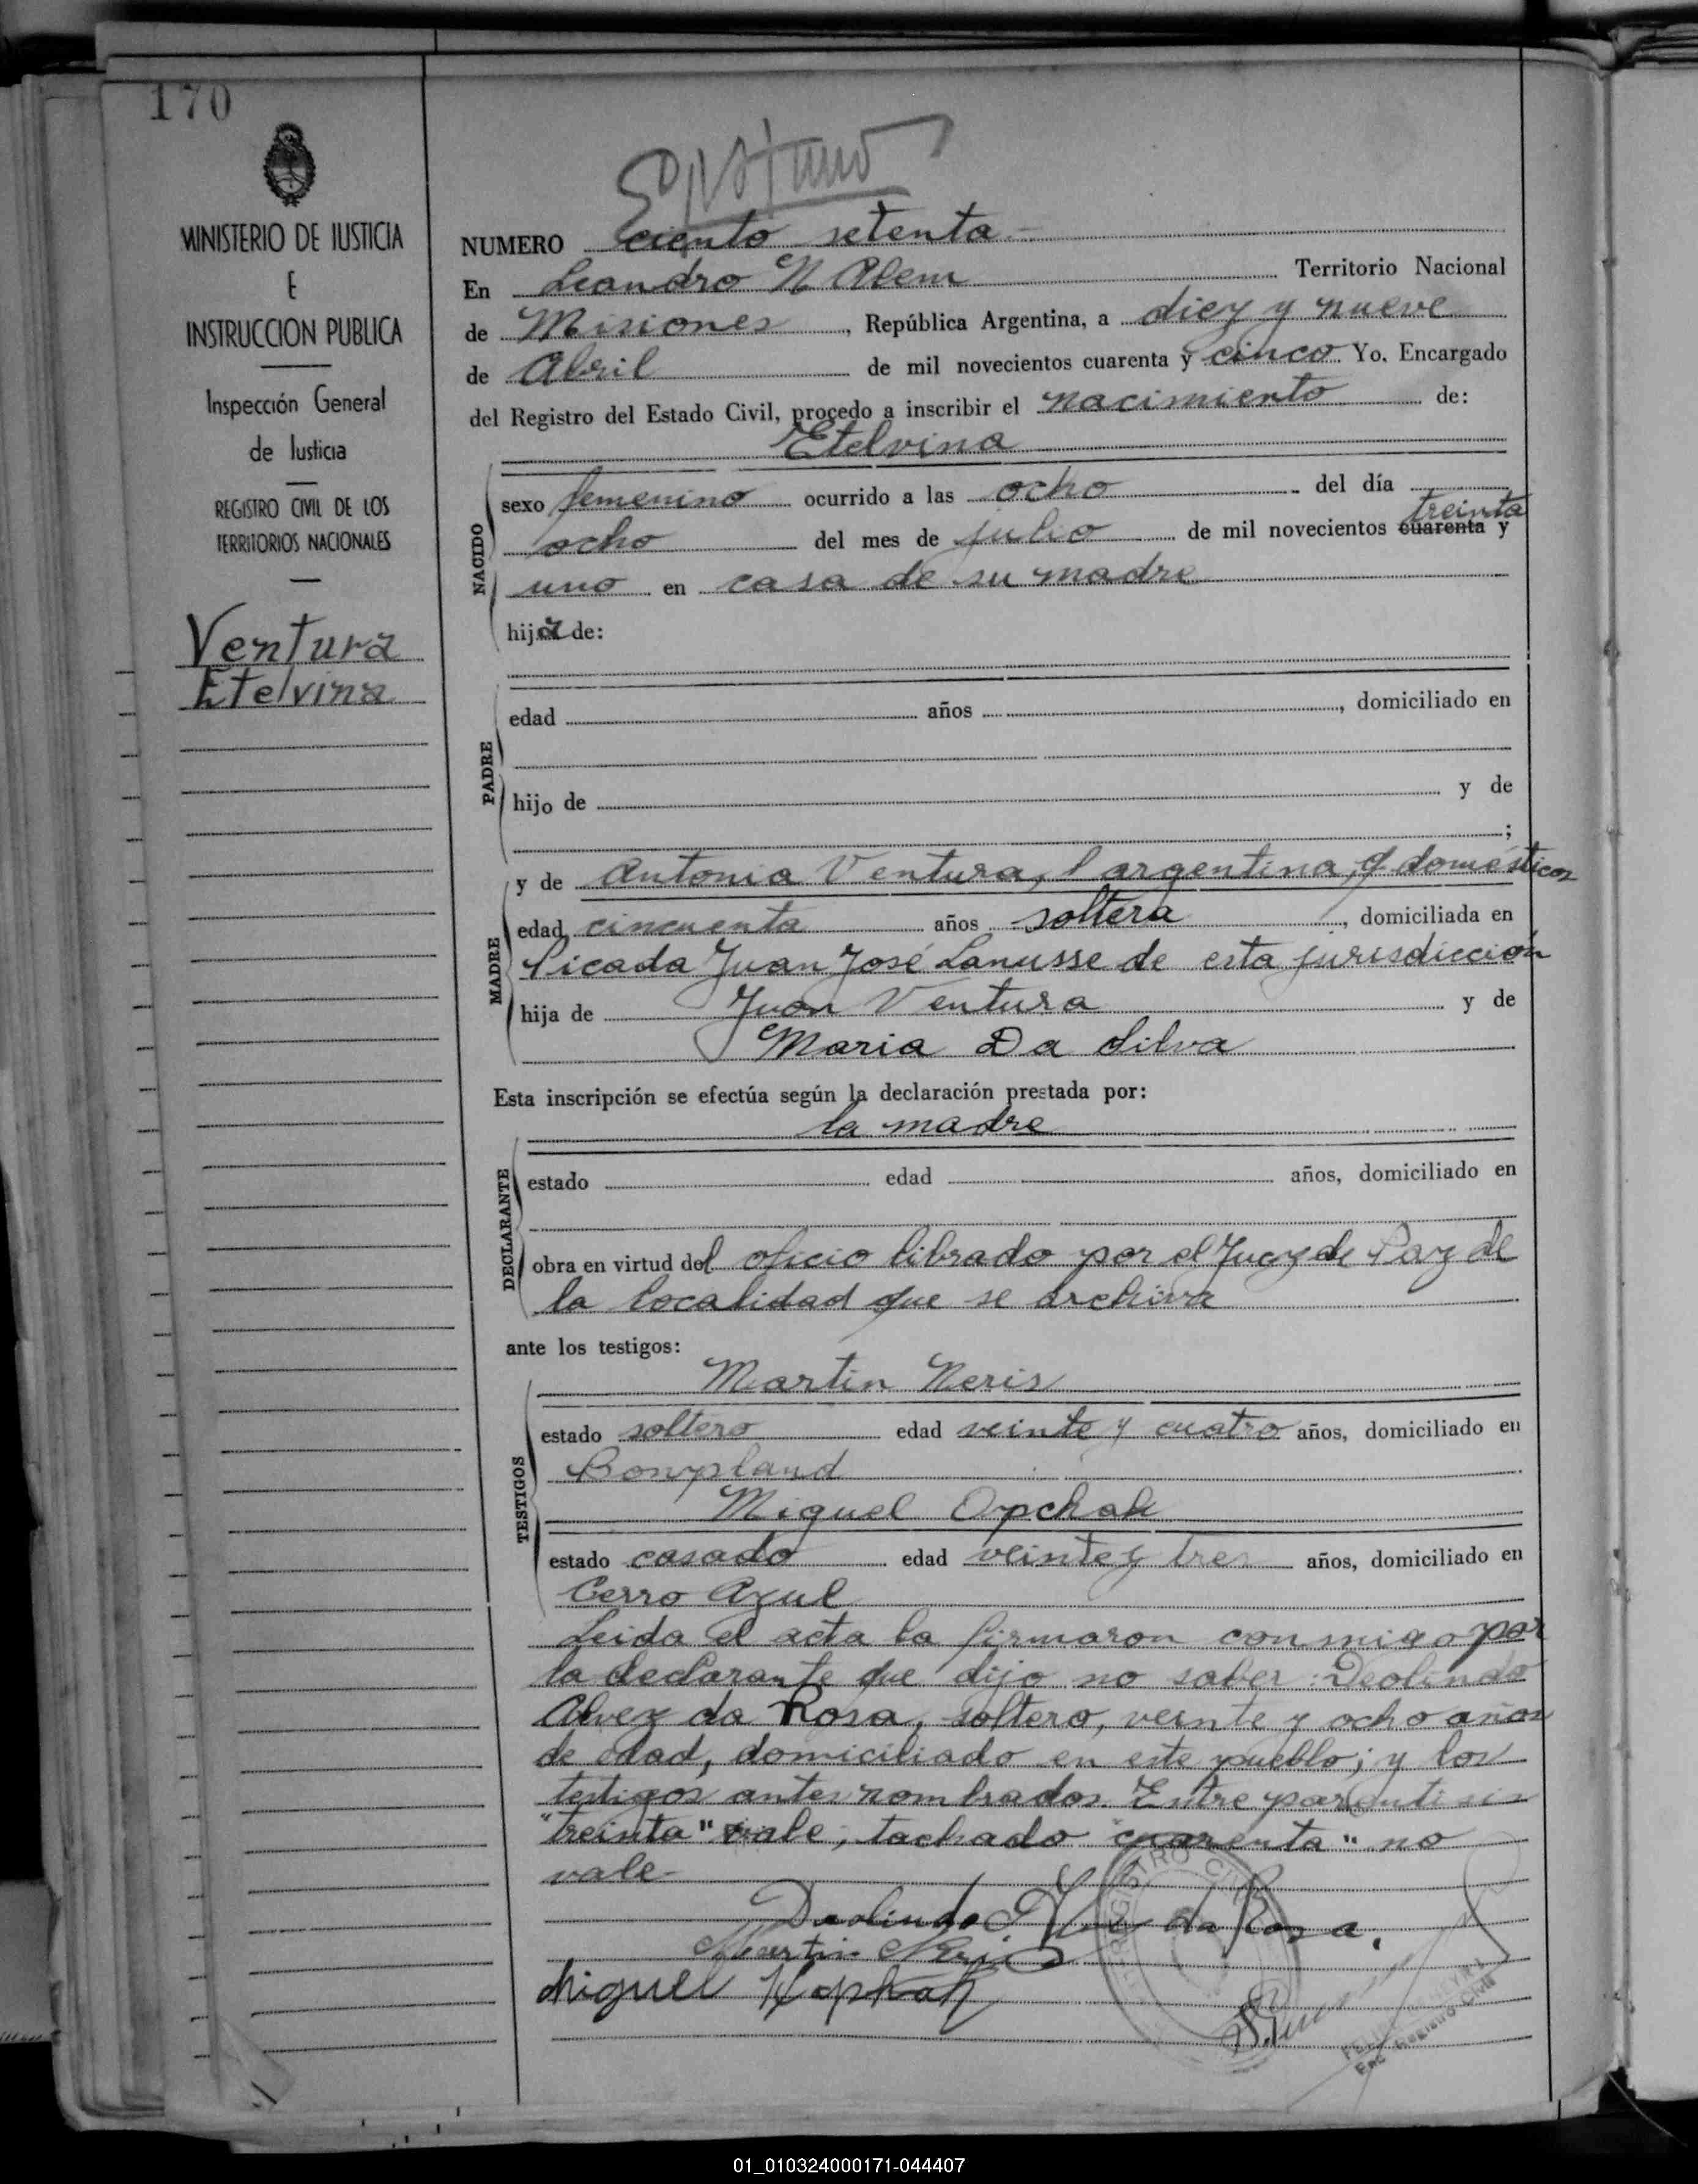 170
MINISTERIO DE JUSTICIA
E
INSTRUCCION PUBLICA
Inspección General
de Justicia
REGISTRO CIVIL DE LOS
TERRITORIOS NACIONALES
Ventura
Etelvina
NUMERO ciento setenta
En Leandro N Alem Territorio Nacional
de Misiones, República Argentina, a diez y nueve
de Abril de mil novecientos cuarenta y cinco Yo, Encargado
del Registro del Estado Civil, procedo a inscribir el nacimiento de:
Etelvina
NACIDO
sexo femenino ocurrido a las ocho del día
ocho del mes de julio de mil novecientos cuarenta treinta y
uno en casa de su madre
hija de:
PADRE
edad años , domiciliado en
hijo de y de
;
MADRE
y de Antonia Ventura, argentina, q. domésticos
edad cincuenta años soltera, domiciliada en
Picada Juan José Lanusse de esta jurisdicción
hija de Juan Ventura y de
Maria Da Silva
Esta inscripción se efectúa según la declaración prestada por:
la madre
DECLARANTE
estado edad años, domiciliado en
obra en virtud del oficio librado por el Juez de Paz de
la localidad que se archiva
ante los testigos:
TESTIGOS
Martin Neris
estado soltero edad veinte y cuatro años, domiciliado en
Bonpland
Miguel Opchak
estado casado edad veinte y tres años, domiciliado en
Cerro Azul
Leida el acta la firmaron conmigo por
la declarante que dijo no saber: Deolindo
Alvez da Rosa, soltero, veinte y ocho años
de edad, domiciliado en este pueblo; y los
testigos antes nombrados. Entre parentisis
"treinta" vale; tachado "cuarenta" no
vale
REGISTRO CIVIL
Deolindo Alves da Rosa.
Martin Neris
Miguel
Enc. Registro Civil
01_010324000171-044407